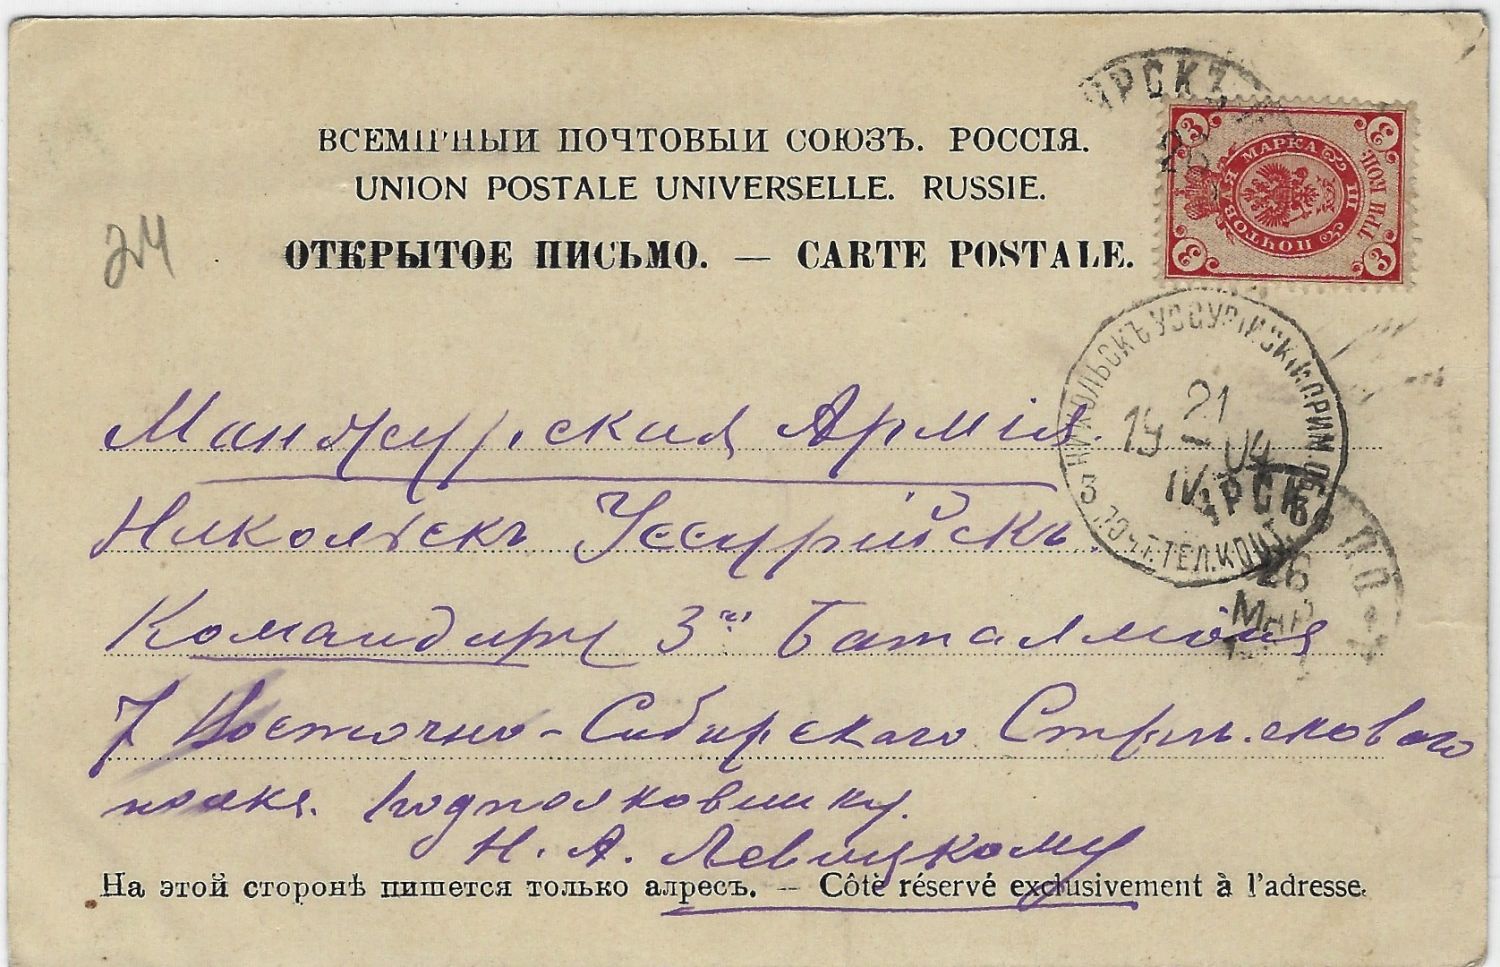 ВСЕМІРНЫЙ ПОЧТОВЫЙ СОЮЗЪ. РОССІЯ.
UNION POSTALE UNIVERSELLE. RUSSIE.
ОТКРЫТОЕ ПИСЬМО. — CARTE POSTALE.
24
ПОЧТОВАЯ МАРКА
ТРИ КОП.
3 3 3 3
НИКОЛЬСКЪ УССУРІЙСКІЙ ПРИМ. ОБ.
21
19 – 04
IV
3 ПОЧТ. ТЕЛ. КОНТ.
26
МАР
Манжурская Армія.
Никольскъ Уссурійскъ.
Командиру 3го Баталліона
7 Восточно-Сибирскаго Стрѣлковаго
полка. Подполковнику.
Н. А. Левицкому
На этой сторонѣ пишется только адресъ. — Côté réservé exclusivement à l'adresse.